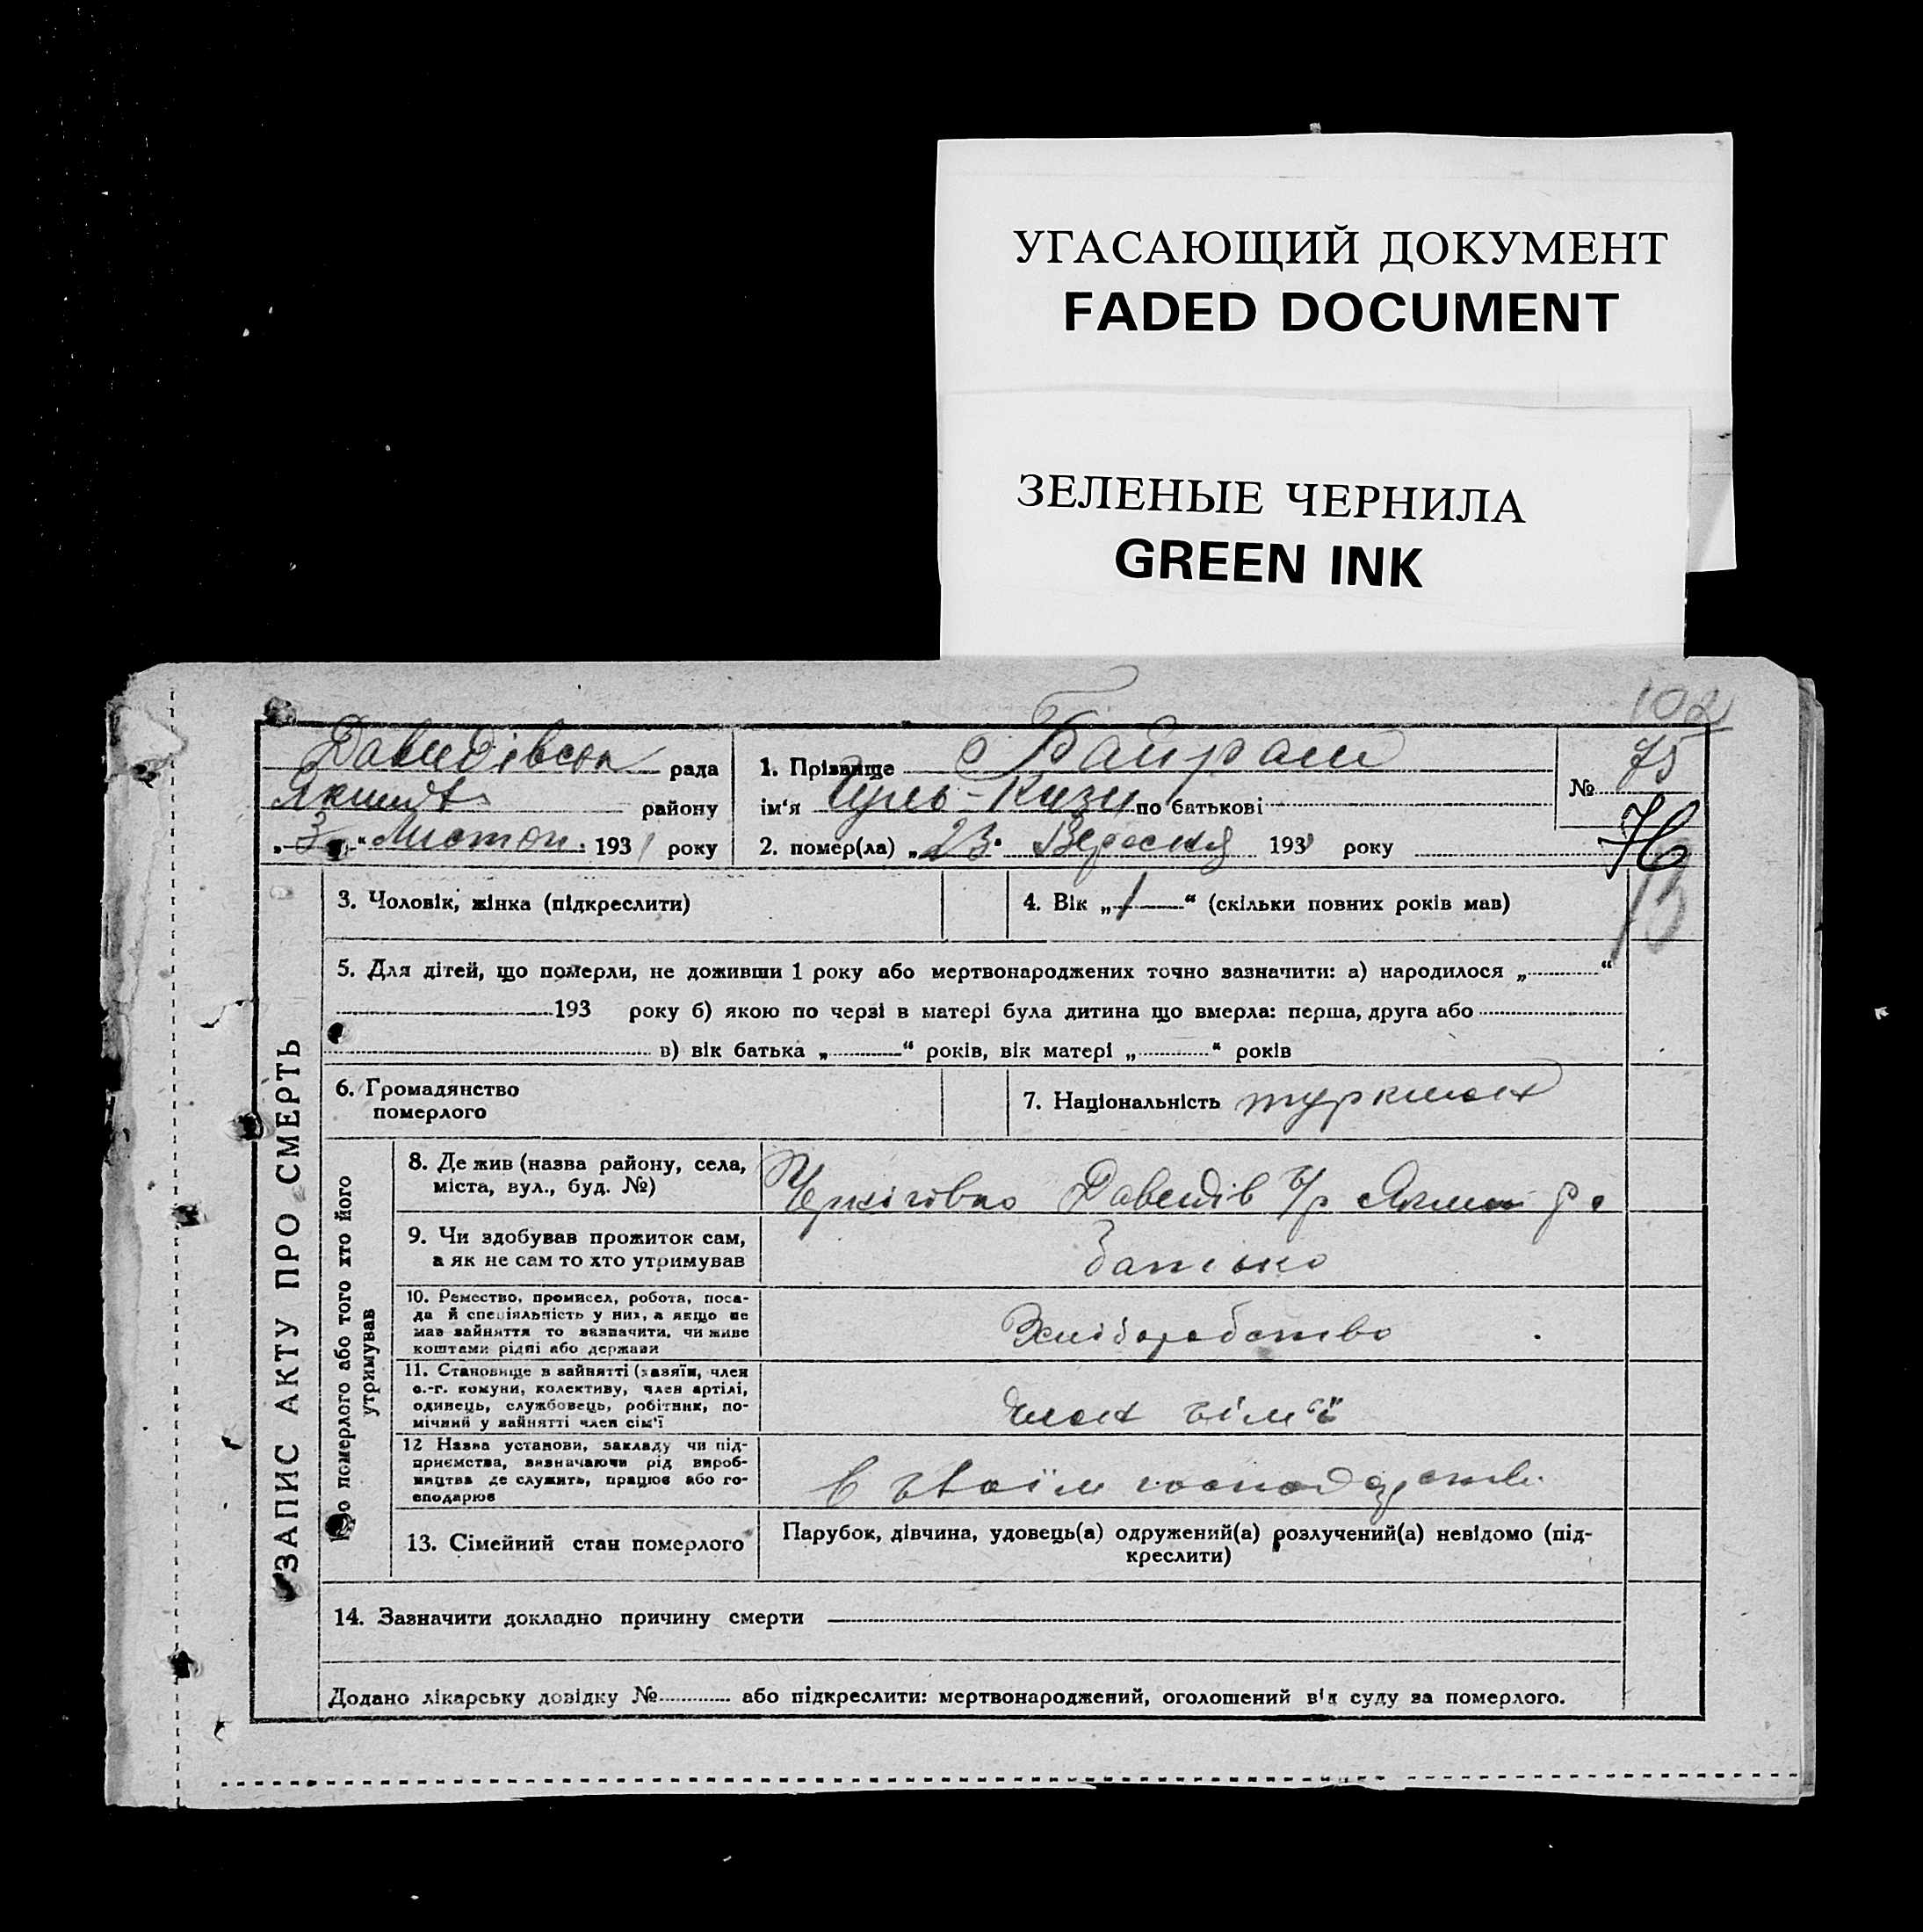 УГАСАЮЩИЙ ДОКУМЕНТ
FADED DOCUMENT
ЗЕЛЕНЫЕ ЧЕРНИЛА
GREEN INK
102
Давидівська рада
Якимів району
„3“ Листоп. 1931 року
1. Прізвище Байрам
ім'я Гуль-Кизи по батькові
2. помер(ла) „23“ Вересня 193 року
№ 75
76
13
ЗАПИС АКТУ ПРО СМЕРТЬ
3. Чоловік, жінка (підкреслити)
4. Вік „1“ (скільки повних років мав)
5. Для дітей, що померли, не доживши 1 року або мертвонароджених точно вазначити: а) народилося „ “
193 року б) якою по черзі в матері була дитина що вмерла: перша, друга або
в) вік батька „ “ років, вік матері „ “ років
6. Громадянство
померлого
7. Національність туркмен
Про померлого або того хто його
утримував
8. Де жив (назва району, села,
міста, вул., буд. №)
Чернігівка Давидів с/р Яким р.
9. Чи здобував прожиток сам,
а як не сам то хто утримував
батько
10. Ремество, промисел, робота, поса-
да й спеціяльність у них, а якщо не
мав зайняття то вазначити, чи живе
коштами рідні або держави
Хліборобство
11. Становище в зайнятті (хазяїн, член
с.-г. комуни, колективу, член артілі,
одинець, службовець, робітник, по-
мічний у зайнятті член сім'ї
член сім'ї
12 Назва установи, закладу чи під-
приємства, вазначаючи рід вироб-
ництва де служить, працює або го-
сподарює
в своїм господарстві
13. Сімейний стан померлого
Парубок, дівчина, удовець(а) одружений(а) розлучений(а) невідомо (під-
креслити)
14. Зазначити докладно причину смерти
Додано лікарську довідку № або підкреслити: мертвонароджений, оголошений від суду за померлого.